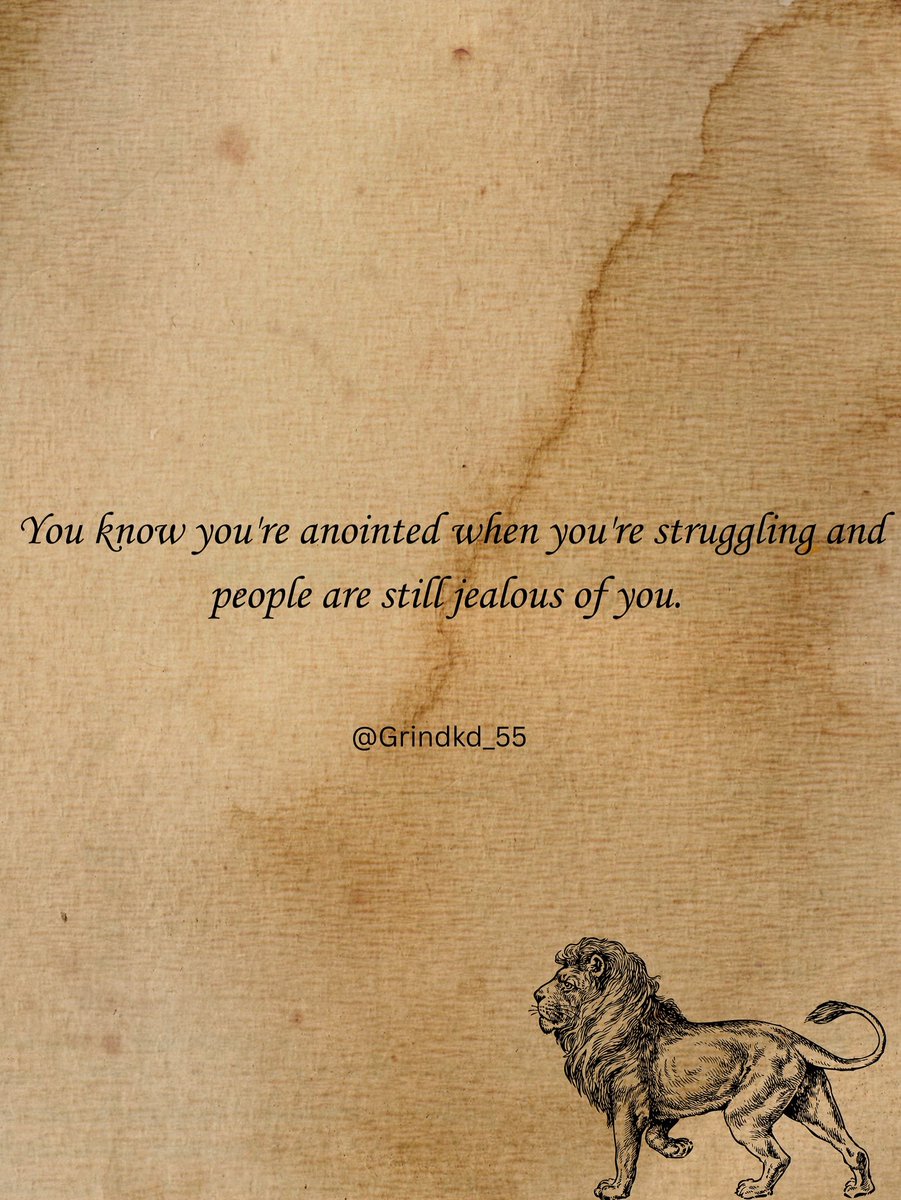 You know you're anointed when you're struggling and
people are still jealous of you.
@Grindkd_55